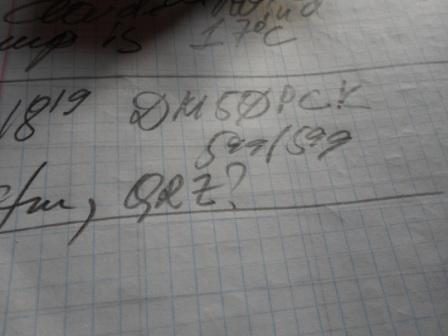 temp is 17°C
18 19 DM50PCK
599/599
cfm, QRZ?